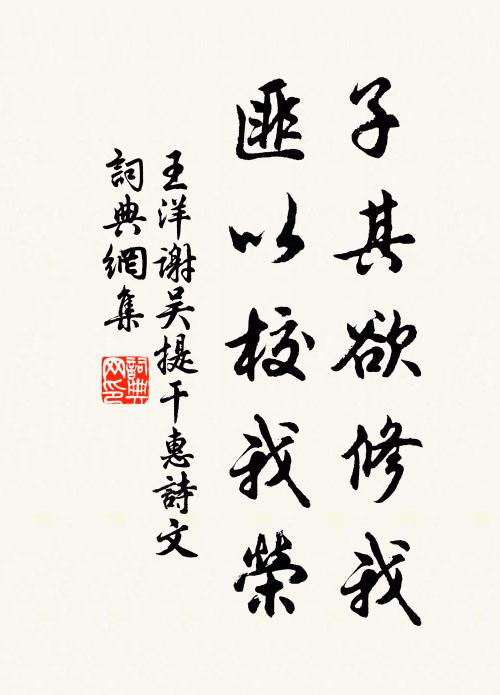 子其欲修我
匪以校我榮
王洋謝吴提干惠詩文
詞典網集
詞典
网印